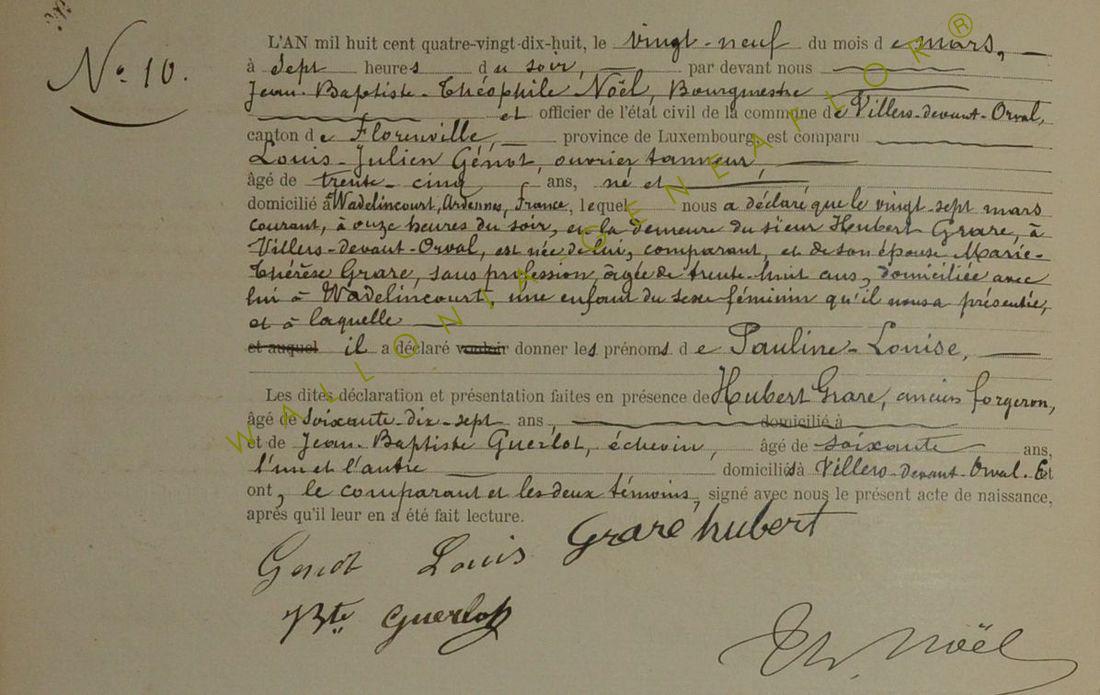 No 10.
L'AN mil huit cent quatre-vingt-dix-huit, le vingt-neuf du mois de mars,
à sept heures du soir, par devant nous
Jean-Baptiste-Théophile Noël, Bourgmestre
et officier de l'état civil de la commune de Villers-devant-Orval,
canton de Florenville, province de Luxembourg, est comparu
Louis-Julien Génot, ouvrier tanneur,
âgé de trente-cinq ans, né et
domicilié à Wadelincourt, Ardennes, France, lequel nous a déclaré que le vingt sept mars
courant, à onze heures du soir, en la demeure du sieur Hubert Grare, à
Villers-devant-Orval, est née de lui, comparant, et de son épouse Marie-
Thérèse Grare, sans profession, âgée de trente-huit ans, domiciliée avec
lui à Wadelincourt, une enfant du sexe féminin qu'il nous a présentée,
et à laquelle
et auquel il a déclaré vouloir donner les prénoms de Pauline-Louise,
Les dites déclaration et présentation faites en présence de Hubert Grare, ancien forgeron,
âgé de soixante-dix-sept ans, domicilié à
et de Jean-Baptiste Guerlot, échevin, âgé de soixante ans,
l'un et l'autre domiciliés à Villers-devant-Orval. Et
ont, le comparant et les deux témoins, signé avec nous le présent acte de naissance,
après qu'il leur en a été fait lecture.
Genot Louis Grare hubert
JBte Guerlot
Th. Noël
WALLONIA GENEAPLOR ®